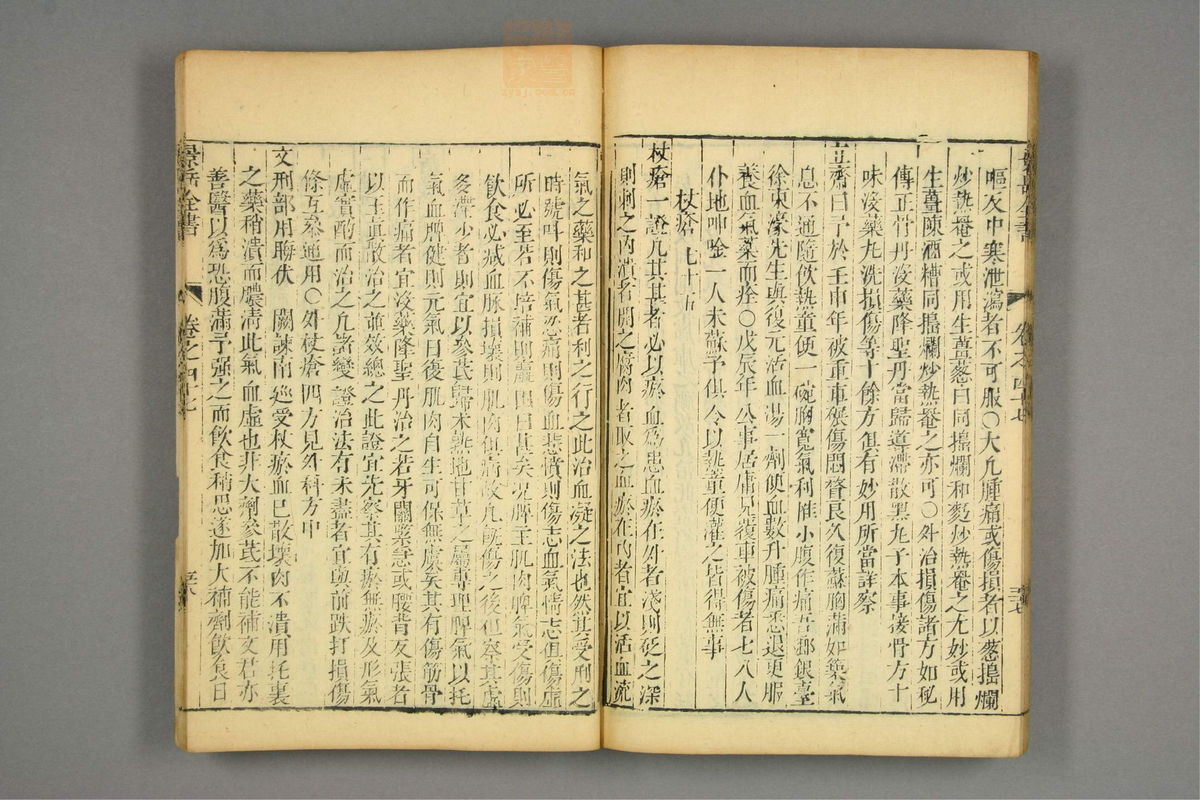 嘔及中寒泄瀉者不可服○大凡腫痛或傷損者以葱搗爛
炒熱罨之或用生薑葱白同搗爛和麪炒熱罨之尤妙或用
生薑陳酒糟同搗爛炒熱罨之亦可○外治損傷諸方如秘
傳正骨丹沒藥降聖丹當歸導滯散黑丸子本事接骨方十
味沒藥丸洗損傷等十餘方俱有妙用所當詳察
立齋曰予於壬申年被重車碾傷悶瞀良久復蘇胸滿如築氣
息不通隨飲熱童便一碗胸寬氣利惟小腹作痛吾鄉銀臺
徐東濠先生與復元活血湯一劑便血數升腫痛悉退更服
養血氣藥而痊○戊辰年公事居庸見覆車被傷者七八人
仆地呻吟一人未蘇予俱令以熱童便灌之皆得無事
杖瘡 七十五
杖瘡一證凡其甚者必以瘀血爲患血瘀在外者淺則砭之深
則刺之內潰者開之腐肉者取之血瘀在內者宜以活血流
氣之藥和之甚者利之行之此治血凝之法也然其受刑之
時號呌則傷氣忍痛則傷血悲憤則傷志血氣情志俱傷虛
所必至若不培補則羸困日甚矣况脾主肌肉脾氣受傷則
飲食必減血脉損壞則肌肉俱病故凡既傷之後但察其虛
多滯少者則宜以參芪歸朮熟地甘草之屬專理脾氣以托
氣血脾健則元氣日復肌肉自生可保無虞矣其有傷筋骨
而作痛者宜沒藥降聖丹治之若牙關緊急或腰背反張者
以玉眞散治之並效總之此證宜先察其有瘀無瘀及形氣
虛實酌而治之凡諸變證治法有未盡者宜與前跌打損傷
條互叅通用○外杖瘡四方見外科方中
文刑部用晦伏闕諫南廵受杖瘀血已散壞肉不潰用托裏
之藥稍潰而膿清此氣血虛也非大劑參芪不能補文君亦
善醫以爲恐腹滿予强之而飲食稍思遂加大補劑飲食日
景岳全書
卷之四十七